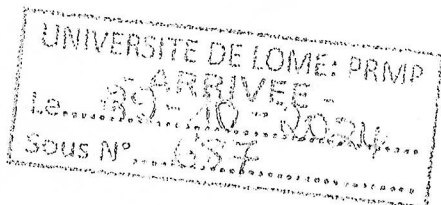 UNIVERSITE DE LOME: PRMP
- ARRIVEE -
Le 10 - 2024
Sous N° 637